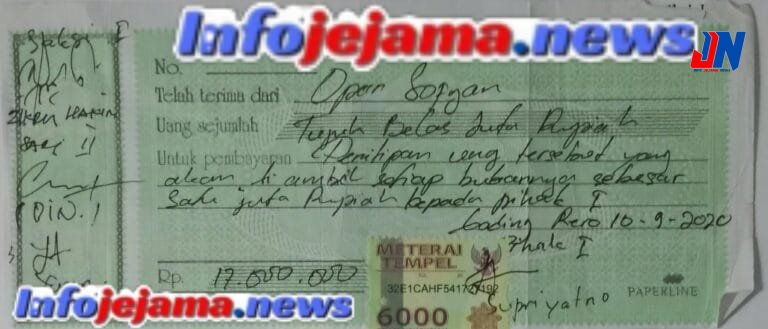 Infojejama.news
JN
Saksi I
No.
Telah terima dari Opan Sopyan
Uang sejumlah Tujuh Belas Juta Rupiah
Untuk pembayaran Penitipan uang tersebut yang
akan di ambil setiap bulannya sebesar
Satu juta Rupiah kepada pihak I
Gading Rero 10-9-2020
Phak I
Saksi II
(DIN.)
Rp. 17.000.000
METERAI
TEMPEL
6000
Supriyatno
PAPERLINE
Infojejama.news